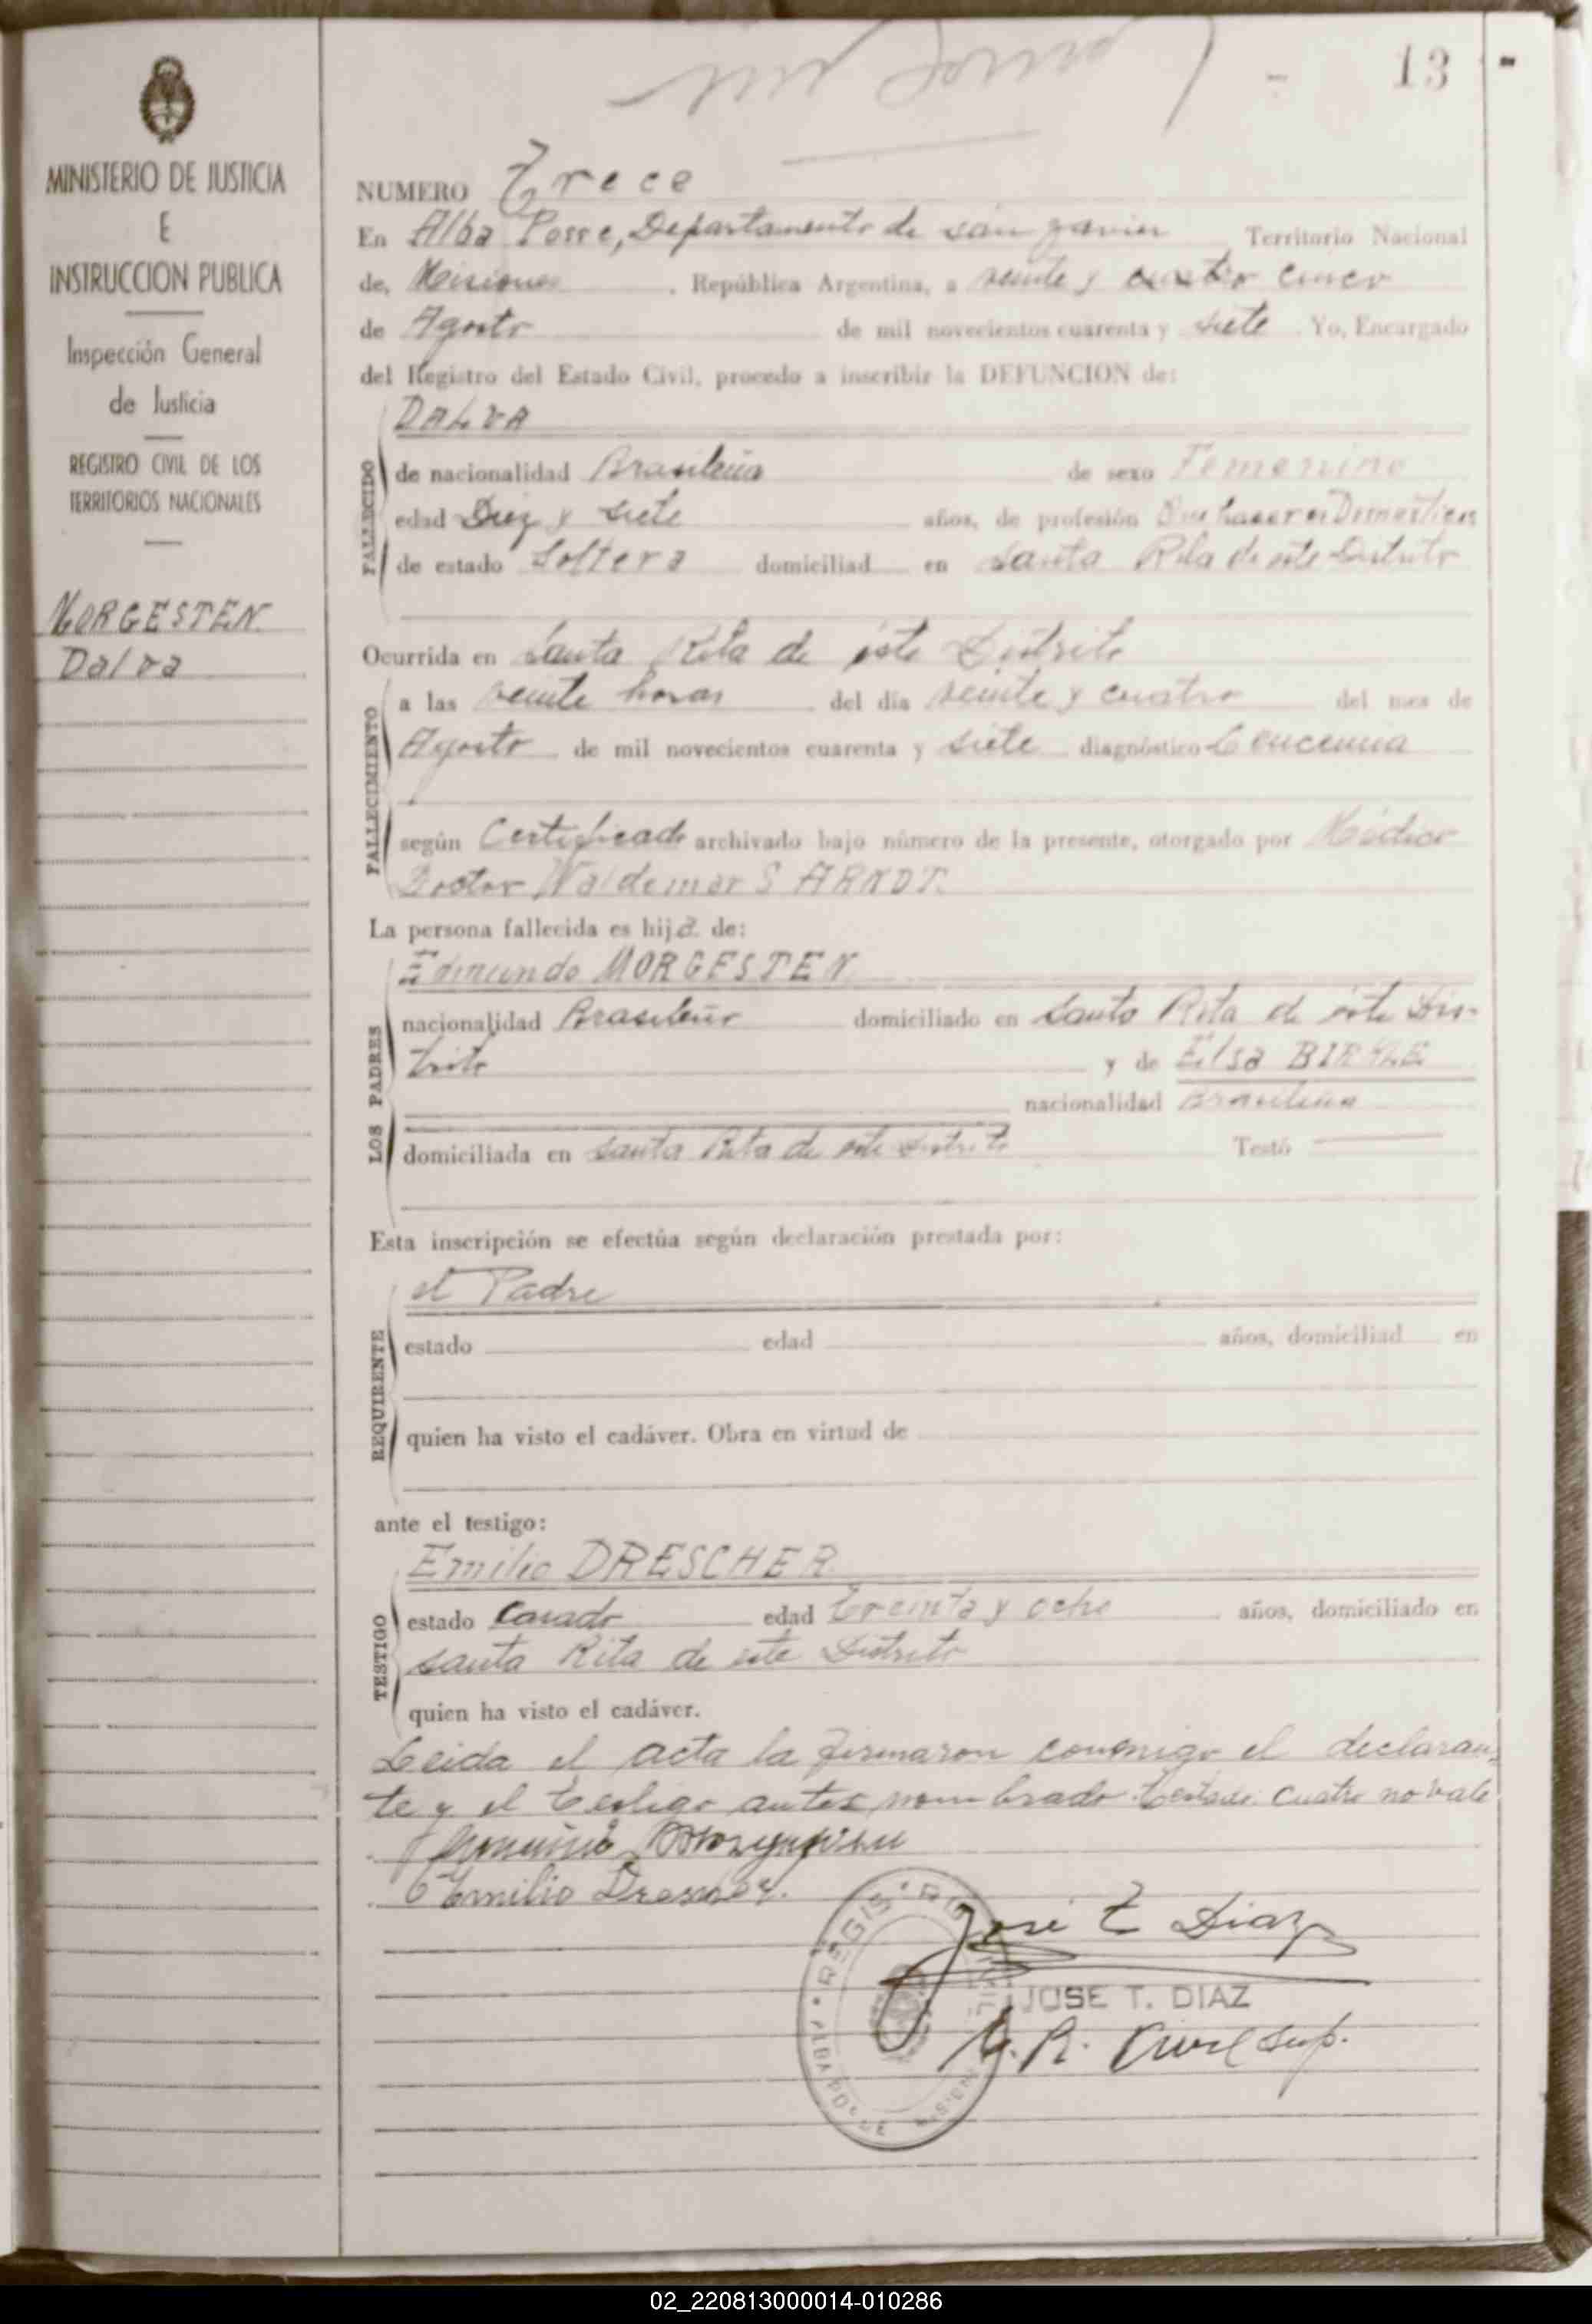 13
MINISTERIO DE JUSTICIA
E
INSTRUCCION PUBLICA
Inspección General
de Justicia
REGISTRO CIVIL DE LOS
TERRITORIOS NACIONALES
MORGESTEN
Dalva
NUMERO Trece
En Alba Posse, Departamento de san Javier Territorio Nacional
de, Misiones, República Argentina, a veinte y cuatro cinco
de Agosto de mil novecientos cuarenta y siete. Yo, Encargado
del Registro del Estado Civil, procedo a inscribir la DEFUNCION de:
DALVA
FALLECIDO
de nacionalidad Brasileña de sexo Femenino
edad Diez y siete años, de profesión Quehaceres Domesticos
de estado Soltera domiciliad en Santa Rita de este Distrito
Ocurrida en Santa Rita de este Distrito
FALLECIMIENTO
a las veinte horas del día veinte y cuatro del mes de
Agosto de mil novecientos cuarenta y siete diagnóstico Leucemia
según Certificado archivado bajo número de la presente, otorgado por Médico
Doctor Waldemar S ARNDT.
La persona fallecida es hija de:
LOS PADRES
Edmundo MORGESTEN
nacionalidad Brasileño domiciliado en Santa Rita de este Dis-
trito y de Elsa
nacionalidad Brasileña
domiciliada en Santa Rita de este Distrito Testó
Esta inscripción se efectúa según declaración prestada por:
REQUIRENTE
el Padre
estado edad años, domiciliad en
quien ha visto el cadáver. Obra en virtud de
ante el testigo:
TESTIGO
Emilio DRESCHER
estado Casado edad treinta y ocho años, domiciliado en
santa Rita de este Distrito
quien ha visto el cadáver.
Leida el acta la firmaron conmigo el declaran-
te y el testigo antes nombrado. Testado: cuatro no vale
Emilio Drescher.
REGISTRO CIVIL
ALBA POSSE MISIONES
José T Diaz
JOSE T. DIAZ
E. R. Civil Sup.
02_220813000014-010286